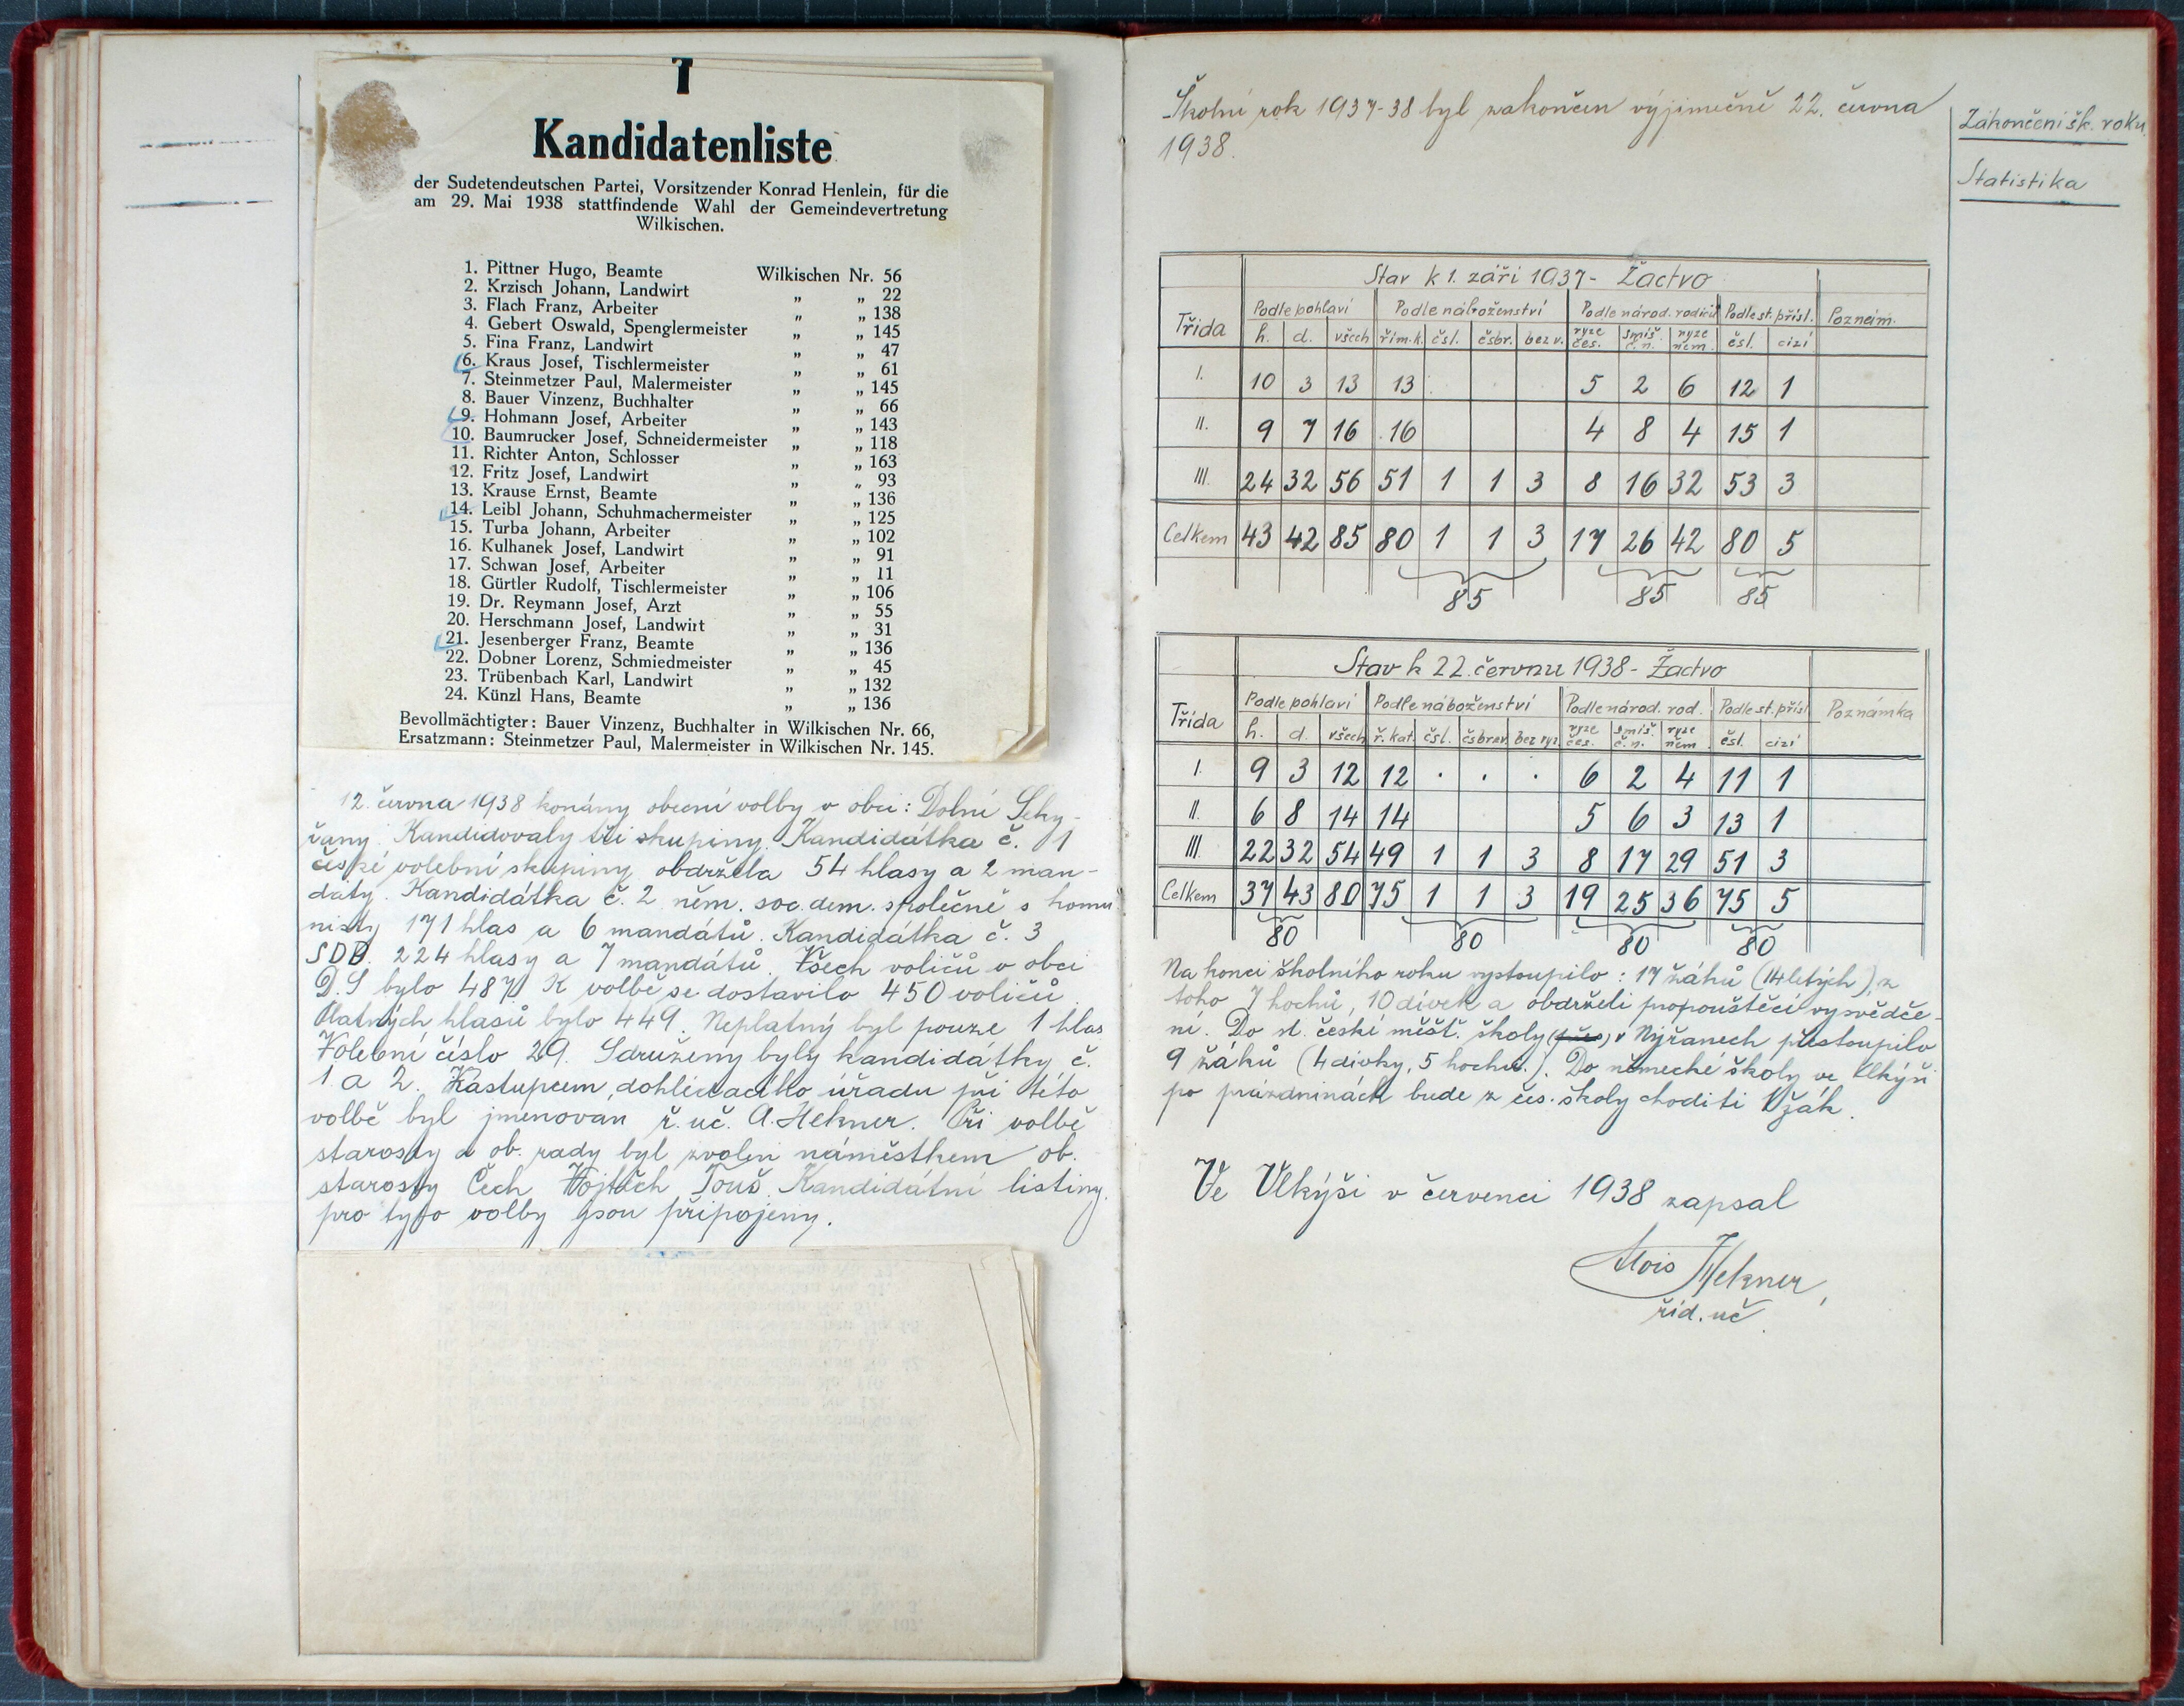 1
Kandidatenliste
der Sudetendeutschen Partei, Vorsitzender Konrad Henlein, für die
am 29. Mai 1938 stattfindende Wahl der Gemeindevertretung
Wilkischen.
1. Pittner Hugo, Beamte Wilkischen Nr. 56
2. Krzisch Johann, Landwirt „ „ 22
3. Flach Franz, Arbeiter „ „ 138
4. Gebert Oswald, Spenglermeister „ „ 145
5. Fina Franz, Landwirt „ „ 47
6. Kraus Josef, Tischlermeister „ „ 61
7. Steinmetzer Paul, Malermeister „ „ 145
8. Bauer Vinzenz, Buchhalter „ „ 66
9. Hohmann Josef, Arbeiter „ „ 143
10. Baumrucker Josef, Schneidermeister „ „ 118
11. Richter Anton, Schlosser „ „ 163
12. Fritz Josef, Landwirt „ „ 93
13. Krause Ernst, Beamte „ „ 136
14. Leibl Johann, Schuhmachermeister „ „ 125
15. Turba Johann, Arbeiter „ „ 102
16. Kulhanek Josef, Landwirt „ „ 91
17. Schwan Josef, Arbeiter „ „ 11
18. Gürtler Rudolf, Tischlermeister „ „ 106
19. Dr. Reymann Josef, Arzt „ „ 55
20. Herschmann Josef, Landwirt „ „ 31
21. Jesenberger Franz, Beamte „ „ 136
22. Dobner Lorenz, Schmiedmeister „ „ 45
23. Trübenbach Karl, Landwirt „ „ 132
24. Künzl Hans, Beamte „ „ 136
Bevollmächtigter: Bauer Vinzenz, Buchhalter in Wilkischen Nr. 66,
Ersatzmann: Steinmetzer Paul, Malermeister in Wilkischen Nr. 145.
12. června 1938 konány obecní volby v obci: Dolní Seky-
řany. Kandidovaly tři skupiny. Kandidátka č. 1
české volební skupiny obdržela 54 hlasy a 2 man-
dáty. Kandidátka č. 2 něm. soc. dem. společně s komu
nisty 171 hlas a 6 mandátů. Kandidátka č. 3
SDP. 224 hlasy a 7 mandátů. Všech voličů v obci
D. S bylo 487. K volbě se dostavilo 450 voličů.
Platných hlasů bylo 449. Neplatný byl pouze 1 hlas
Volební číslo 29. Sdruženy byly kandidátky č.
1 a 2. Zástupcem dohlédacího úřadu při této
volbě byl jmenován ř. uč. A. Hekner. Při volbě
starosty a ob. rady byl zvolen náměstkem ob.
starosty Čech Vojtěch Touš. Kandidátní listiny
pro tyto volby jsou připojeny.
Školní rok 1937-38 byl zakončen výjimečně 22. června
1938.
Zakončení šk. roku
Statistika
Stav k 1. září 1937 - Žactvo
Třída Podle pohlaví Podle náboženství Podle národ. rodičů Podle st. přísl. Poznám.
h. d. všech řím.k. čsl. čsbr. bez v. ryze čes. smíš. č.n. ryze něm. čsl. cizí
I. 10 3 13 13 . . . 5 2 6 12 1
II. 9 7 16 16 4 8 4 15 1
III. 24 32 56 51 1 1 3 8 16 32 53 3
Celkem 43 42 85 80 1 1 3 17 26 42 80 5
85 85 85
Stav k 22. červnu 1938 - Žactvo
Třída Podle pohlaví Podle náboženství Podle národ. rod. Podle st. přísl Poznámka
h. d. všech ř. kat. čsl. čsbrat bez vyz. ryze čes. smíš. č.n. ryze něm čsl. cizí
I. 9 3 12 12 . . . 6 2 4 11 1
II. 6 8 14 14 5 6 3 13 1
III. 22 32 54 49 1 1 3 8 17 29 51 3
Celkem 37 43 80 75 1 1 3 19 25 36 75 5
80 80 80 80
Na konci školního roku vystoupilo: 17 žáků (14letých), z
toho 7 hochů, 10 dívek a obdrželi propouštěcí vysvědče-
ní. Do st. české měšť. školy v Nýřanech přestoupilo
9 žáků (4 dívky, 5 hochů.). Do německé školy ve Vlkýši
po prázdninách bude z čes. školy choditi 1 žák.
Ve Vlkýši v červenci 1938 zapsal
Alois Hekner,
říd. uč.